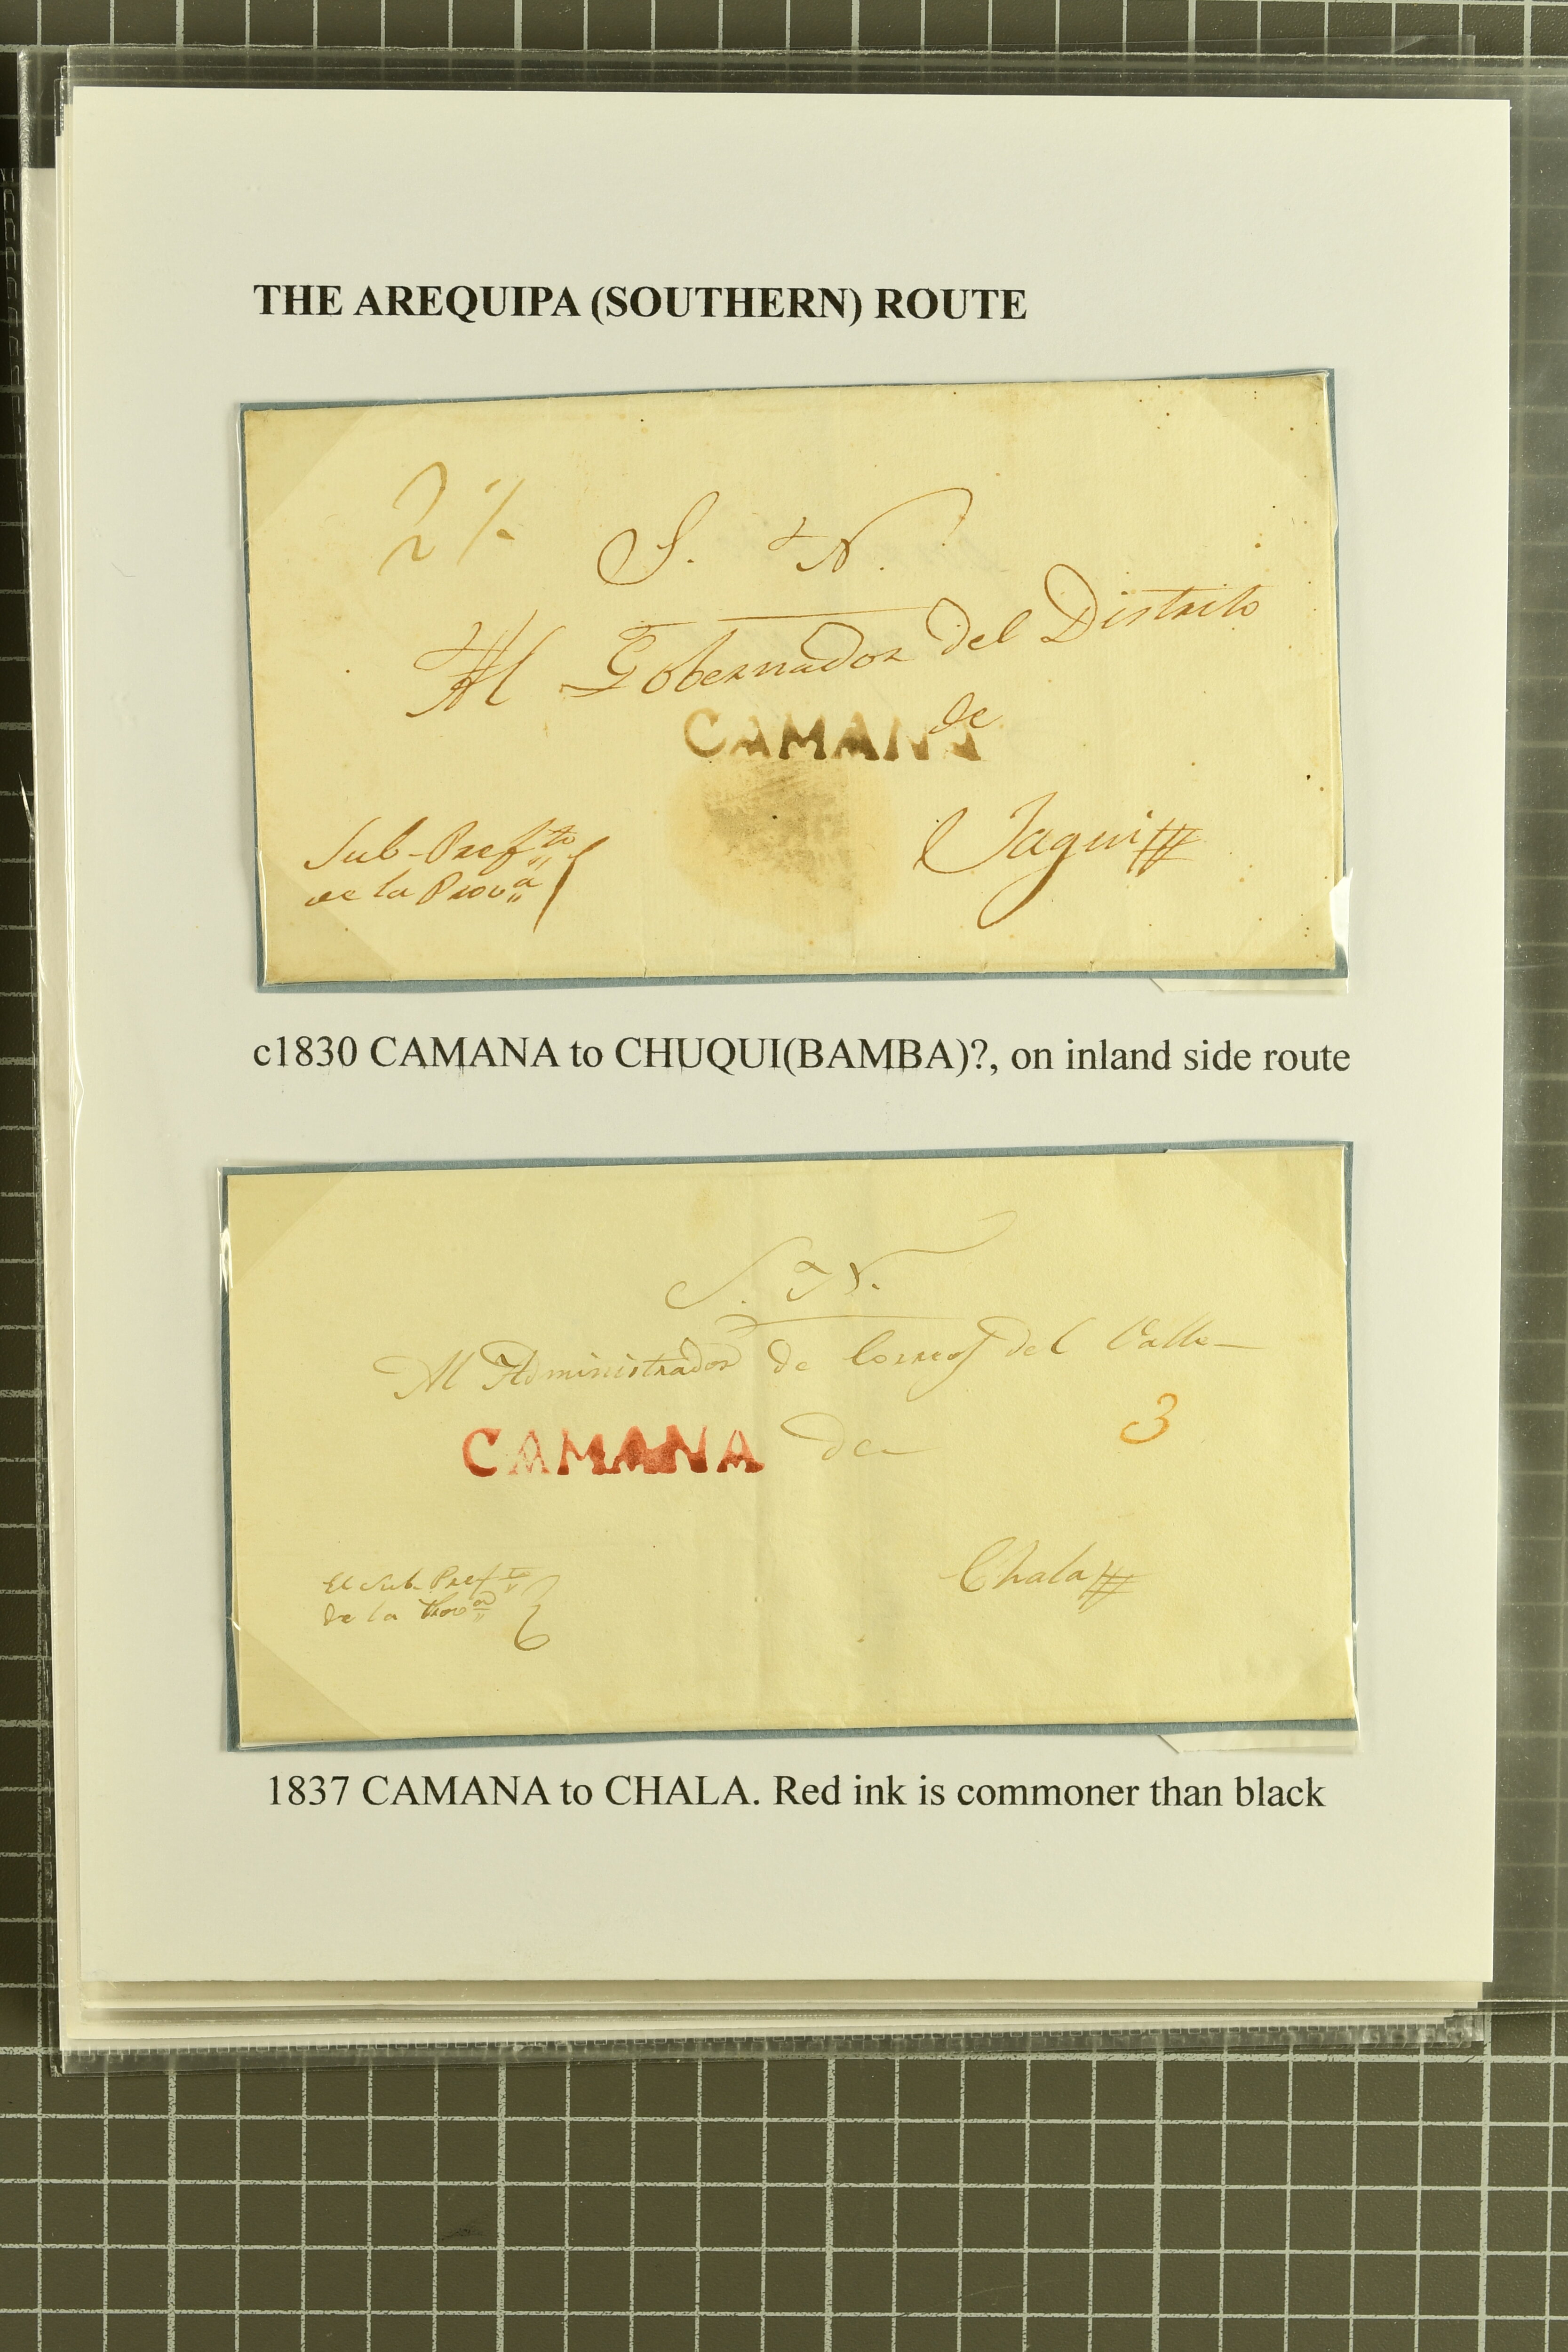 THE AREQUIPA (SOUTHERN) ROUTE
2 ½
S. N.
Al Gobernador del Distrito
de
CAMANA
Jaqui
Sub-Prefto
de la Prova
c1830 CAMANA to CHUQUI(BAMBA)?, on inland side route
S. N.
Al Administrador de Correos del Valle
3
CAMANA de
Chala
El Sub-Prefto
de la Prova
1837 CAMANA to CHALA. Red ink is commoner than black